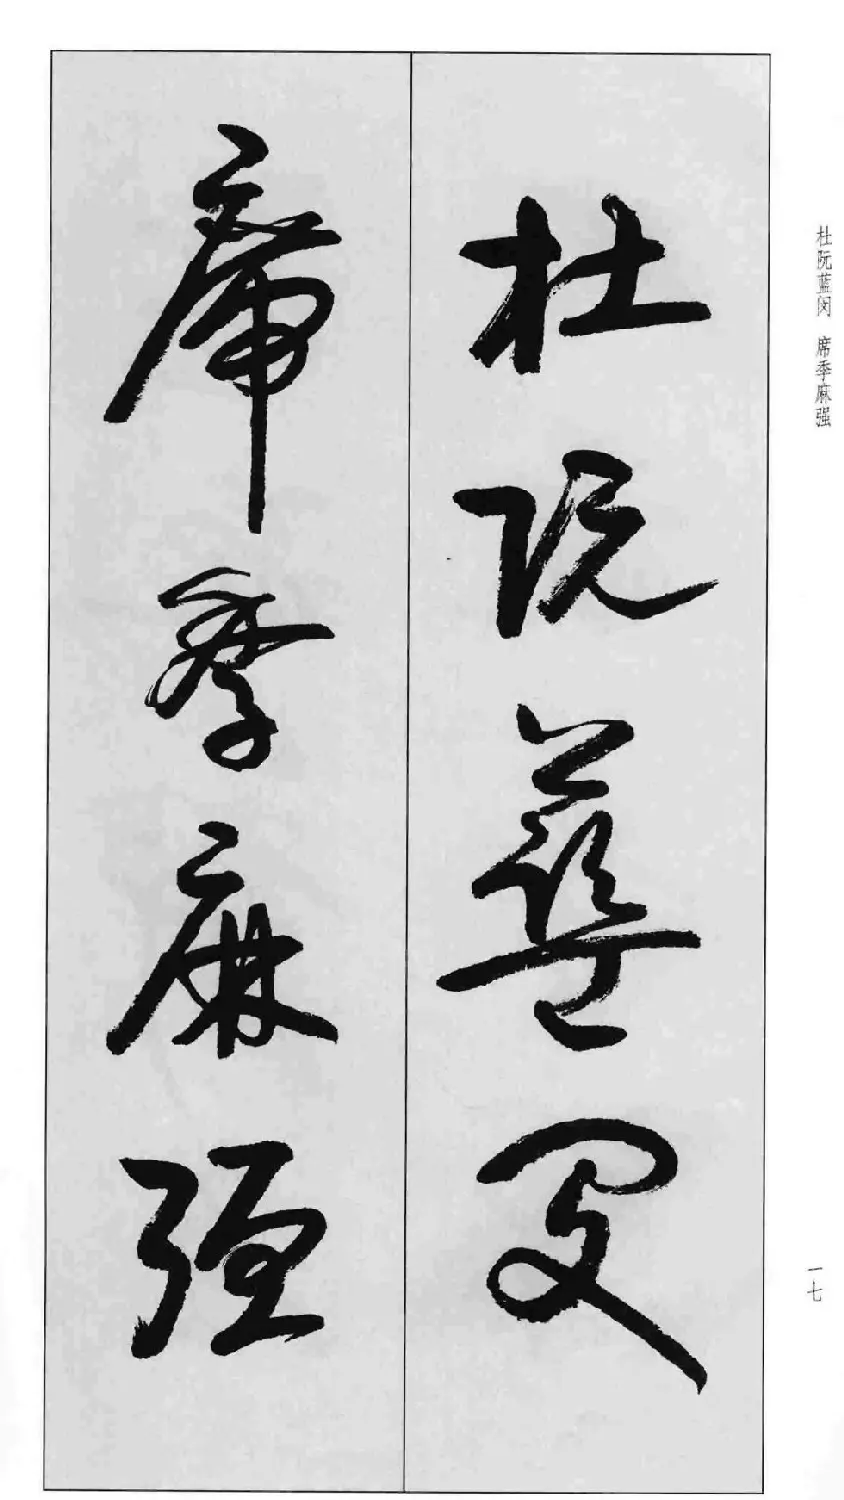 杜阮蓝闵 席季麻强
杜阮蓝闵
席季麻强
一七